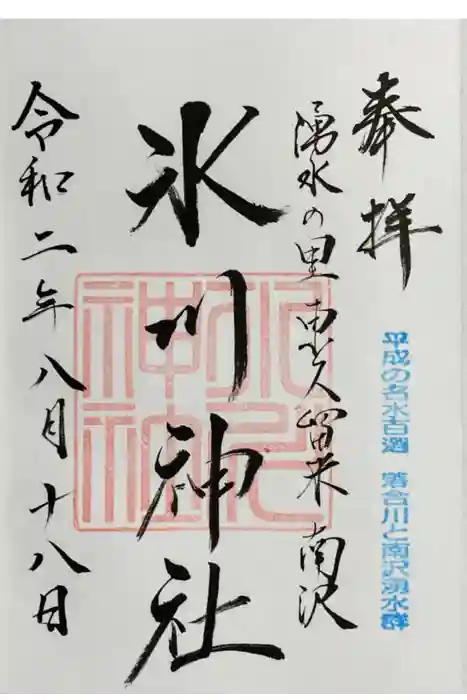 奉拝
平成の名水百選 落合川と南沢湧水群
湧水の里 東久留米 南沢
氷川神社
氷川神社
令和二年八月十八日